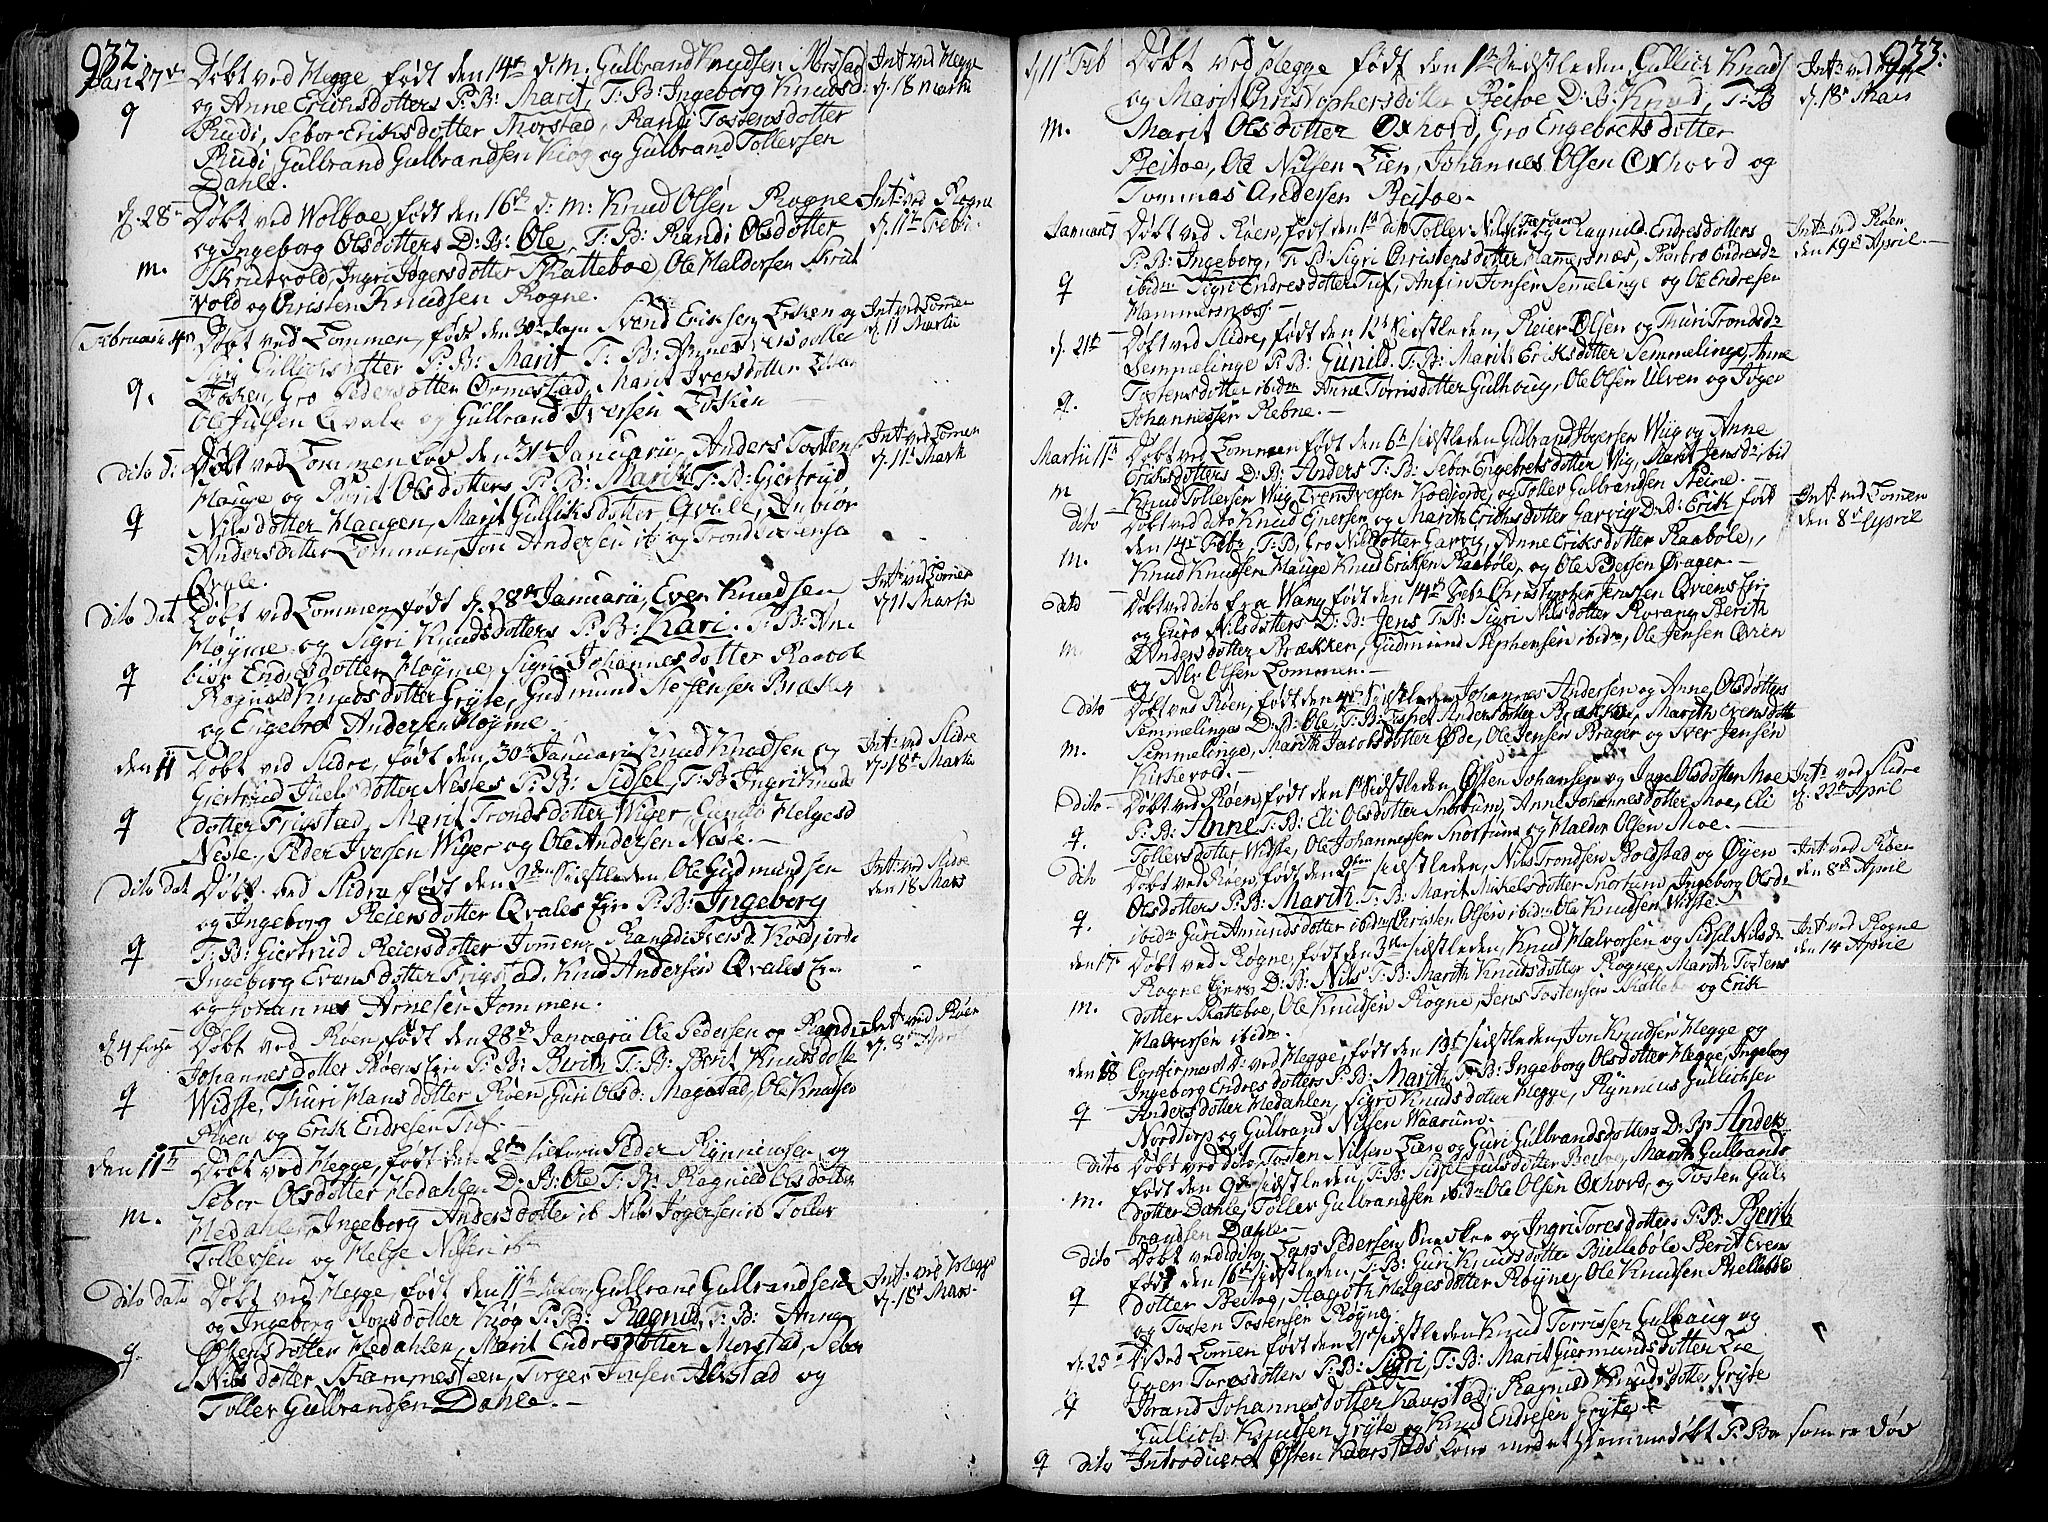 932.
Jan: 27de Døbt ved Hegge, født den 14de d: M: Gulbrand Knudsen Morstad
og Anne Erichsdotters P: B: Marit, T: B: Ingeborg Knudsd:
Rudi, Sebor Eriksdotter Morstad, Randi Tostensdotter
Rudi, Gulbrand Gulbrandsen Kiøg og Gulbrand Tollersen
Dahle.
Int: ved Hegge
d. 18 Martii
q
d. 28 Døbt ved Wolboe, født den 16de d: M: Knud Olsen Rogne
og Ingeborg Olsdotters D: B: Ole, T: B: Randi Olsdotter
Skrudvold, Ingri Jøgersdotter Skatteboe, Ole Haldorsen Skrut
vold og Christen Knudsen Rogne.
Int: ved Rogne
d. 11te Febr:
m.
Februari 4de Døbt ved Lommen, født den 30te Jan: Svend Eriksen Losken og
Sigri Gullichsdotter P: B: Marit T: B: Agnes Iversdotter
Losken, Gro Pedersdotter Ormestad, Marit Iversdotter
Ole Juelsen Qvale og Gulbrand Iversen Losken
Int: ved Lommen
d. 11 Martii
q.
Dito D: Døbt ved Lommen fød den 31te Januarii, Anders Tostens
Haure og Marit Olsdotters P: B: Marith T: B: Giertrud
Nilsdotter Haugen, Marit Gulliksdotter Qvale, Anbiør
Andersdotter Lommen, Jon Andersen ib og Trond
Qvale.
Int: ved Lommen
d. 11te Martii
q
Dito Dat Døbt ved Lommen, født d. 28de Januarii, Even Knudsen
Høyme og Sigri Knudsdotters P: B: Kari. T: B: An-
biør Endresdotter Høyme, Sigri Johannesdotter Raabol
Ragnild Knudsdotter Gryte, Gudmund Steffensen Bræken
og Engebret Andersen Høyme
Int: ved Lommen
d. 11 Martii
q
den 11 Døbt ved Slidre, født den 30te Januarii Knud Knudsen og
Giertrud Juelsdotter Nestes P: B: Sidsel, T: B: Ingri Knuds
dotter Frigstad, Marit Trondsdotter Wiger Gunild Helgesd
Nesle, Peder Iversen Wiger og Ole Andersen Nesle.
Int: ved Slidre
d. 18de Martii
q
Dito Dat Døbt ved Slidre, født den 2den Sidstleden Ole Gudmundsen
og Ingeborg Reiersdotter Qvales Eje P: B: Ingeborg
T: B: Giertrud Reiersdotter Jommen, Randi Iversd: Kodjorde
Ingeborg Evensdotter Frigstad, Knud Andersen Qvales Eje
og Johannes Arnesen Jommen.
Int: ved Slidre
den 18 Marts
q
Døbt ved Røen, født den 28de Januarii Ole Pedersen og Randi
Johannesdotter Røens Eje P: B: Berith T: B: Berit Knudsdotte
Widste, Thuri Hansdotter Røen, Guri Olsd: Magestad, Ole Knudsen
Røen og Erik Endresen Tuf.
Int: ved Røen
d. 8de
q
den 11te Døbt ved Hegge, født den 2den Peder Rynnensen og
Sebor Olsdotter Hedahlen D: B: Ole T: B: Ragnild Olsdotter
Hedahlen, Ingeborg Andersdotter ib Nils Jøgersen ib Toller
Tollersen og Helge Nilsen ib
m.
Dito Dato Døbt ved Hegge, født den 11te Gulbrand Gulbrandsen
og Ingeborg Jonsdotter Kiøg P: B: Ragnild, T: B: Anne
Østensdotter Hedahlen, Marit Endresdotter Morstad, Sebor
Nilsdotter Skammesteen, Torger Jonsen Alvstad og
Toller Gulbrandsen Dahle.
Int: ved Hegge
d. 18de Mars.
q.
933.
d. 11te Feb Døbt ved Hegge født den 1te Sidstleden Gullich Knuds
og Marit Christophersdotter Beitoe D: B: Knud, T: B
Marit Olsdotter Oxhovd, Gro Engebretsdotter
Beitoe, Ole Nilsen Lien, Johannes Olsen Oxhovd og
Tommas Andersen Beitoe.
Int: ved Hegge
d. 18de Mars
m.
Januari Døbt ved Røen, født den 1te dito Toller Nilsen og Ragnild Endresdotters
P: B: Ingeborg, T: B: Sigri Christensdotter Hamersnæs, Barbro Endresd:
ibidm Sigri Endresdotter Tuf, Anfin Jonsen Semelinge og Ole Endresen
Hammersnæss.
Int: ved Røen
den 19de April.
q
d. 21te Døbt ved Slidre, født den 12te Sidstleden, Reier Olsen og Thuri Tronds d:
Semmelinge P: B: Gunild. T: B: Marit Eriksdotter Semmelinge, Anne
Tostensdotter ibidm Anne Torrisdotter Gulhoug, Ole Olsen Ulven og Jøger
Johannessen Rebne.
q.
Martii 11te Døbt ved Lommen, født den 6te Sidstleden Gulbrand Jøgersen Wiig og Anne
Eriksdotters D: B: Anders T: B: Sebor Engebretsdotter Wig, Marit Jensd: ibid
Knud Tollersen Wiig, Even Iversen Kodjorde, og Toller Gulbrandsen Reine.
m
Dito Døbt ved dito Knud Enersen og Marith Erichsdotter Garvig D: B: Erik født
den 14de Feb: T: B: Gro Nilsdotter Garvig, Anne Eriksdotter Raabøle,
Knud Knudsen Hauge Knud Eriksen Raabøle, og Ole Pedersen Qvager.
Int: ved Lommen
den 8de April
m.
Dato Døbt ved dito fra Wang født den 14de Feb: Christopher Jensen Qviens Eje
og Guro Nilsdotters D: B: Jens T: B: Sigri Nilsdotter Rovang, Berith
Andersdotter Brækken, Gudmund Stephensen ibidm, Ole Jensen Qvien
og Alv Olsen Lommen.
m.
Dito Døbt ved Røen, født den 4de Sidstleden Johannes Andersen og Anne Olsdotters
Semmelinges D: B: Ole, T: B: Andersdotter Brække, Marith Evensdotter
Semmelinge, Marith Jacobsdotter Øde, Ole Jensen Brager og Iver Jensen
Kirkevold.
m.
Dito Døbt ved Røen, født den 1te Sidstleden, Østen Johansen og Inge Olsdotter Moe
P: B: Anne T: B: Eli Olsdotter Snortum, Anne Johannesdotter Moe, Eli
Tollersdotter Widste, Ole Johannessen Snortum og Haldor Olsen Moe.
Int: ved Slidre
d. 22te April
q.
Dito Døbt ved Røen, født den 9den Sidstleden, Nils Trondsen Boldstad og Øyen
Olsdotters P: B: Marith T: B: Marit Mickelsdotter Snortum, Ingeborg Olsd:
ibidm Guri Amundsdotter ibidm, Olsen ibidm Ole Knudsen Widste.
Int: ved Røen
den 8de April
q.
den 17de Døbt ved Rogne, født den 3die Sidstleden, Knud Halvorsen og Sidsel Nilsdr
Rogne Ejers D: B: Nils T: B: Marith Knudsdotter Rogne, Marith Tostens
dotter Skatteboe, Ole Knudsen Rogne, Jens Tostensen Skattebo og Erik
Halvorsen ibidm.
Int: ved Rogne
den 14 April
m.
den 18 Confirmeret D: ved Hegge, født den 13de Sidstleden, Jon Knudsen Hegge og
Ingeborg Endresdotters P: B: Marith, T: B: Ingeborg Olsdotter Hegge, Ingeborg
Andersdotter Hedahlen, Sigri Knudsdotter Hegge, Rynnius Gullichsen
Nordtorp og Gulbrand Nilsen Waarum.
q
Dito Døbt ved dito, Tosten Nilsen Lien og Guri Gulbrandsdotters D: B: Anders
født den 9de Sidstleden, T: B: Sidsel Juulsdotter Beitoe, Marith Gulbrands
dotter Dahle, Toller Gulbrandsen ibidm Ole Olsen Oxhovd, og Tosten Gul-
brandsen Dahle.
m.
Dito Døbt ved dito, Lars Pedersen og Ingri Toresdotters P: B: Berith
født den 16de Sidstleden, T: B: Guri Knudsdotter Biellebøle Berit Evens
dotter Beitoe, Aagoth Helgesdotter Røyne, Ole Knudsen Biellebøle
og Tosten Tostensen Røgne.
q
d. 25de D. ved Lomen født den 21de Sidstleden Knud Torrissen Gulhaug og
Gven Toresdotters P: B: Sigri, T: B: Marit Giermundsdotter Loe
Jørand Johannesdotter Kaarstad, Ragnild Knudsdotter Gryte
Gullich Knudsen Gryte og Knud Endresen Gryte
q
q Dito Introduceret Østen Kaarstads Kone med et hjemmedøbt P: Ba som er død